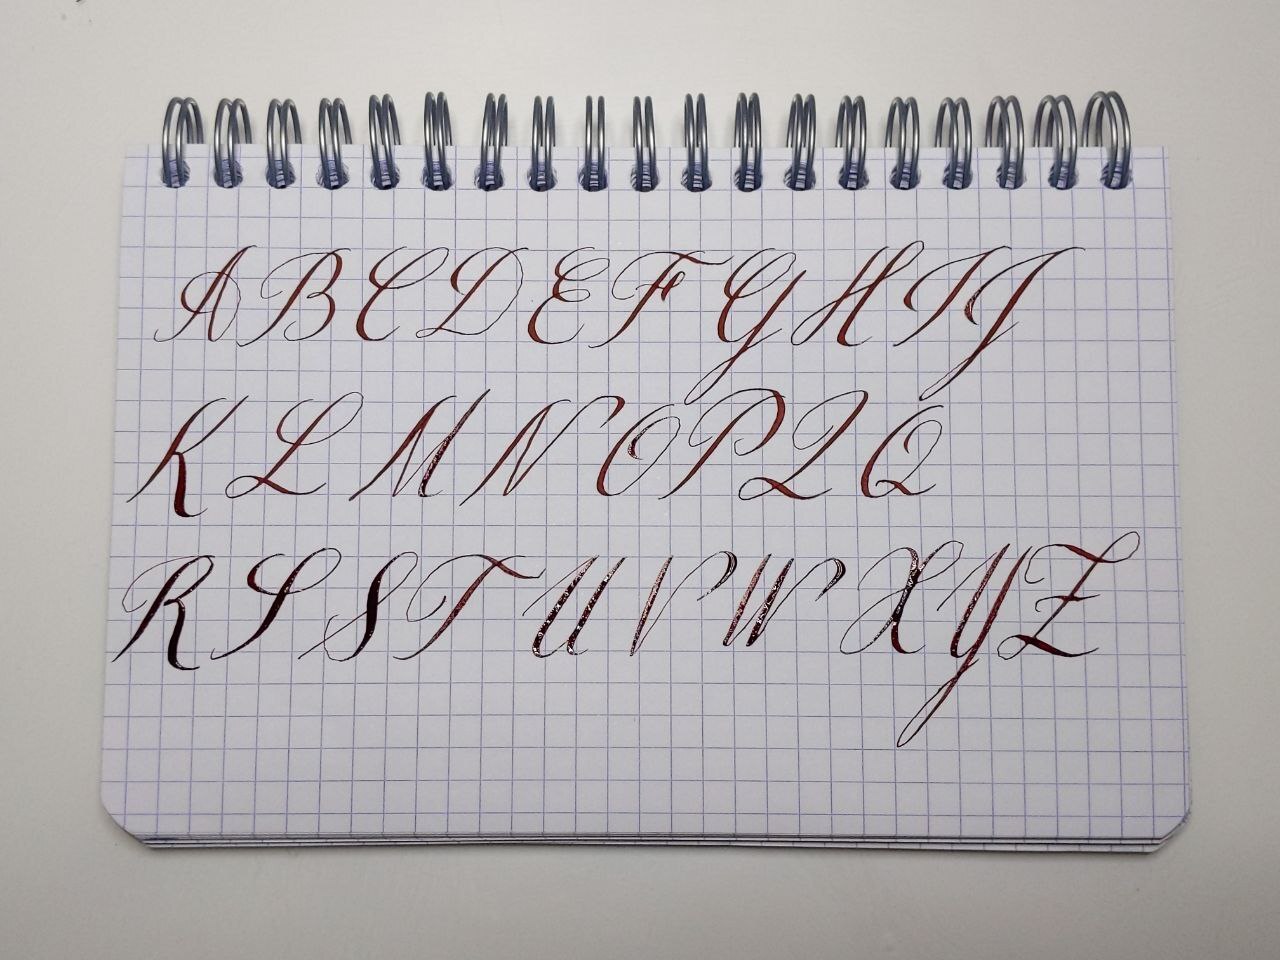 A B C D E F G H I J
K L M N O P Q Q
R S S T U V W X Y Z